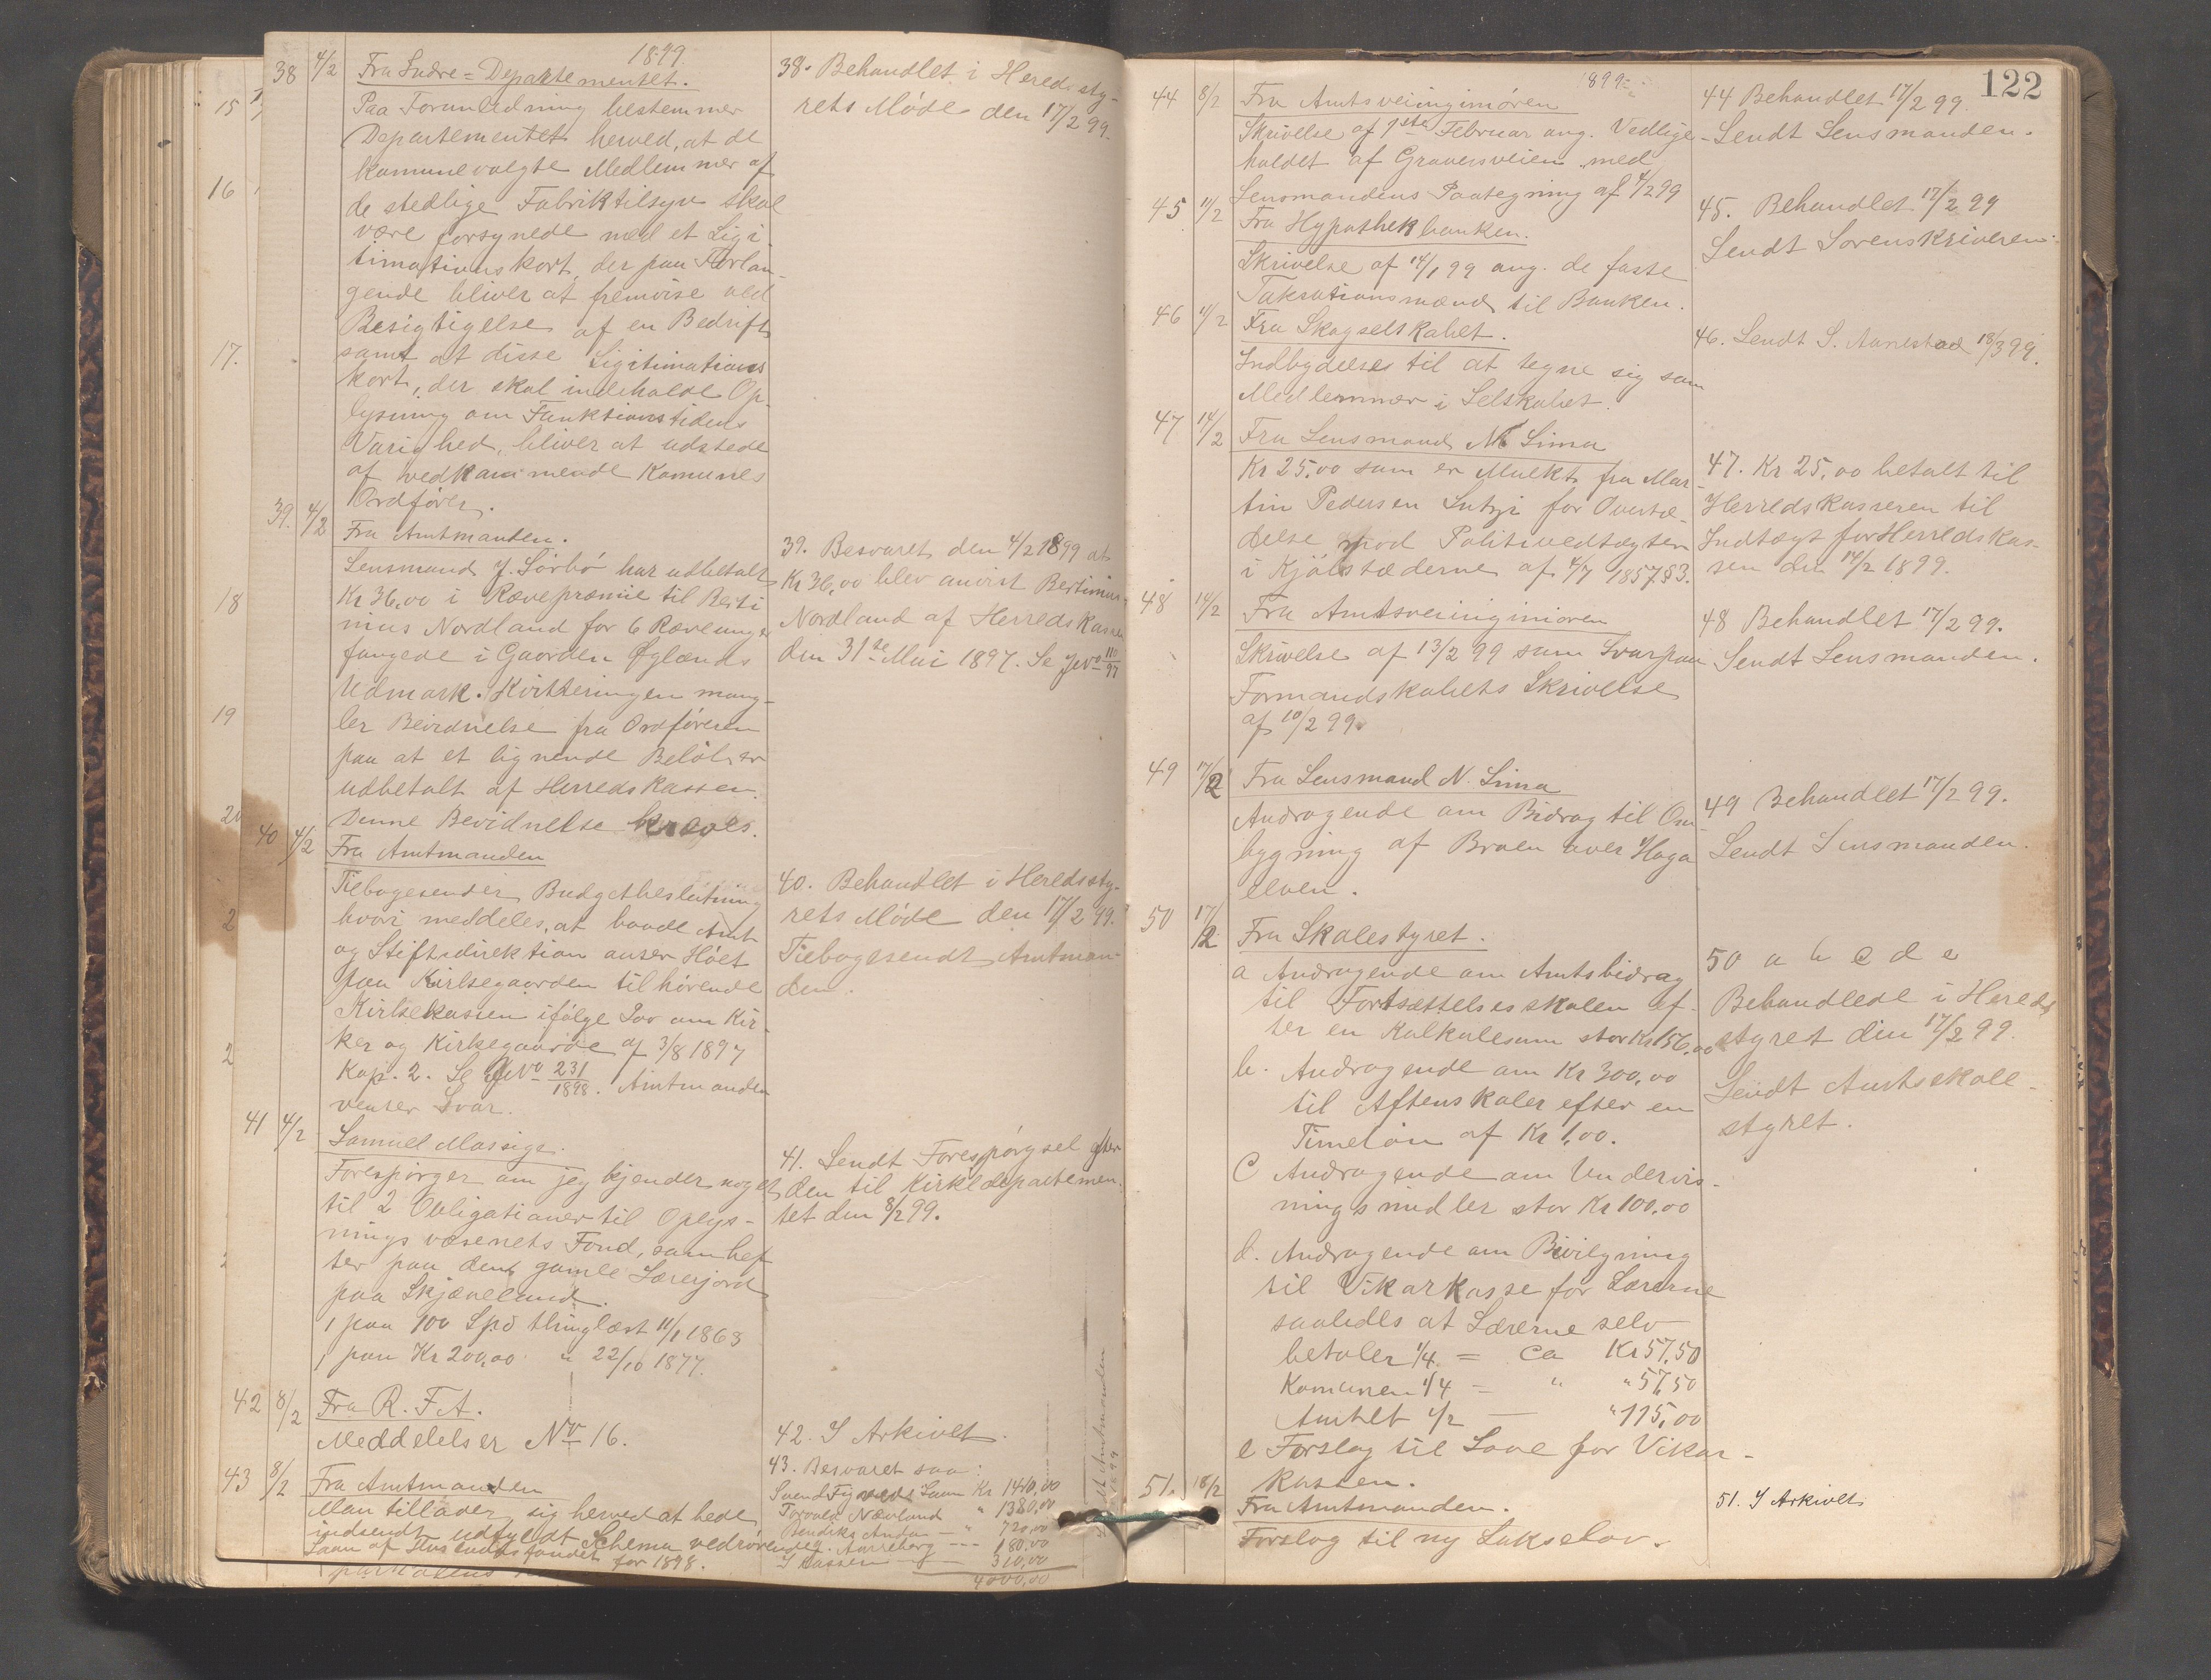 1899
38 4/2 Fra Indre=Departementet.
Paa Foranledning bestemmer
Departementet herved, at de
komunevalgte Medlemmer af
de stedlige Fabriktilsyn skal
være forsynede med et Ligi-
timationskort, der paa Forlan-
gende bliver at fremvise ved
Besigtigelse af en Bedrift
samt at disse Ligitimations
kort, der skal indeholde Op-
lysning om Funktionstidens
Varighed, bliver at udstede
af vedkommende Komunes
Ordfører.
38. Behandlet i Heredssty-
rets Møde den 17/2 99.
39. 4/2 Fra Amtmanden.
Lensmand J. Sørbø har udbetalt
Kr 36,00 i Rævepræmie til Berti
nius Nordland for 6 Ræveunger
fangede i Gaarden Øglænds
Udmark. Kvitteringen mang-
ler Bevidnelse fra Ordføreren
paa at et lignende Beløb er
udbetalt af Herredskassen.
Denne Bevidnelse kræves.
39. Besvaret den 4/2 1899 at
Kr 36,00 blev anvist Bertinius
Nordland af Herredskassen
den 31te Mai 1897. Se JNo 110/97
40 4/2 Fra Amtmanden
Tilbagesender Budgetbeslutning
hvori meddeles, at baade Amt
og Stiftsdirektion anser Höet
paa Kirkegaarden tilhørende
Kirkekassen ifølge Lov om Kir-
ker og Kirkegaarde af 3/8 1897
Kap. 2. Se JNo 231/1898. Amtmanden
venter Svar.
40. Behandlet i Heredssty-
rets Møde den 17/2 99.
Tilbagesendt Amtman-
den.
41 4/2 Samuel Massige.
Forespørger om jeg kjender noget
til 2 Obligationer til Oplys-
nings væsenets Fond, som hef
ter paa den gamle Lærerjord
paa Skjæveland.
1 paa 100 Spd thinglæst 11/1 1863
1 paa Kr 200,00 " 22/10 1877.
41. Sendt Forespørgsel efter
den til Kirkedepartemen-
tet den 8/2 99.
42 8/2 Fra R. F. A.
Meddelelser No 16.
42. I Arkivet.
43 8/2 Fra Amtmanden
Man tillader sig herved at bede
indsendt udfyldt Schema vedrørende
Laan af Husbundsfondet for 1898.
43. Besvaret saa:
Laan Kr 1410,00
Nævland " 1380,00
Bendiks " 720,00
Aarreberg --- 180.00
I Kassen 310,00
4000,00
15
16
17.
18
19
20
122
1899
44 8/2 Fra Amtsveiinginiøren
Skrivelse af 1ste Februar ang. Vedlige-
holdet af Graversveien med
Lensmandens Paategning af 4/2 99
44 Behandlet 17/2 99.
Sendt Lensmanden.
45 11/2 Fra Hypothekbanken.
Skrivelse af 14/1 99 ang. de faste
Taksationsmænd til Banken.
45. Behandlet 17/2 99
Sendt Sorenskriveren.
46 11/2 Fra Skogselskabet.
Indbydelses til at tegne sig som
Medlemmer i Selskabet.
46. Sendt S. Aanestad 18/3 99.
47 14/2 Fra Lensmand N Lima
Kr 25.00 som er Mulkt fra Mar-
tin Pedersen Lutsi for Overtræ-
delse mod Politivedtægten
i Kjøbstæderne af 4/7 1857 §3.
47. Kr 25,00 betalt til
Herredskasseren til
Indtægt for Herredskas-
sen den 14/2 1899.
48 14/2 Fra Amtsveiinginiøren
Skrivelse af 13/2 99 som Svar paa
Formandskabets Skrivelse
af 10/2 99.
48 Behandlet 17/2 99.
Sendt Lensmanden.
49 17/2 Fra Lensmand N. Lima
Andragende om Bidrag til Om
bygning af Broen over Haga
elven.
49 Behandlet 17/2 99.
Sendt Lensmanden.
50 17/2 Fra Skolestyret.
a Andragende om Amtsbidrag
til Fortsættelsesskolen ef-
ter en Kalkulesum stor Kr 156.00
b. Andragende om Kr 300,00
til Aftenskoler efter en
Timeløn af Kr 1,00.
c Andragende om Undervis-
ningsmidler stor Kr 100,00
d. Andragende om Bevilgning
til Vikarkasse for Lærerne
saaledes at Lærerne selv
betaler 1/4 = ca Kr 57,50
Komunen 1/4 = " " 57,50
Amtet 1/2 — " 115,00
e Forslag til Love for Vikar-
kassen.
50 a b c d e
Behandlede i Hereds
styret den 17/2 99.
Sendt Amtsskole-
styret.
51. 18/2 Fra Amtmanden.
Forslag til ny Lakselov.
51. I Arkivet